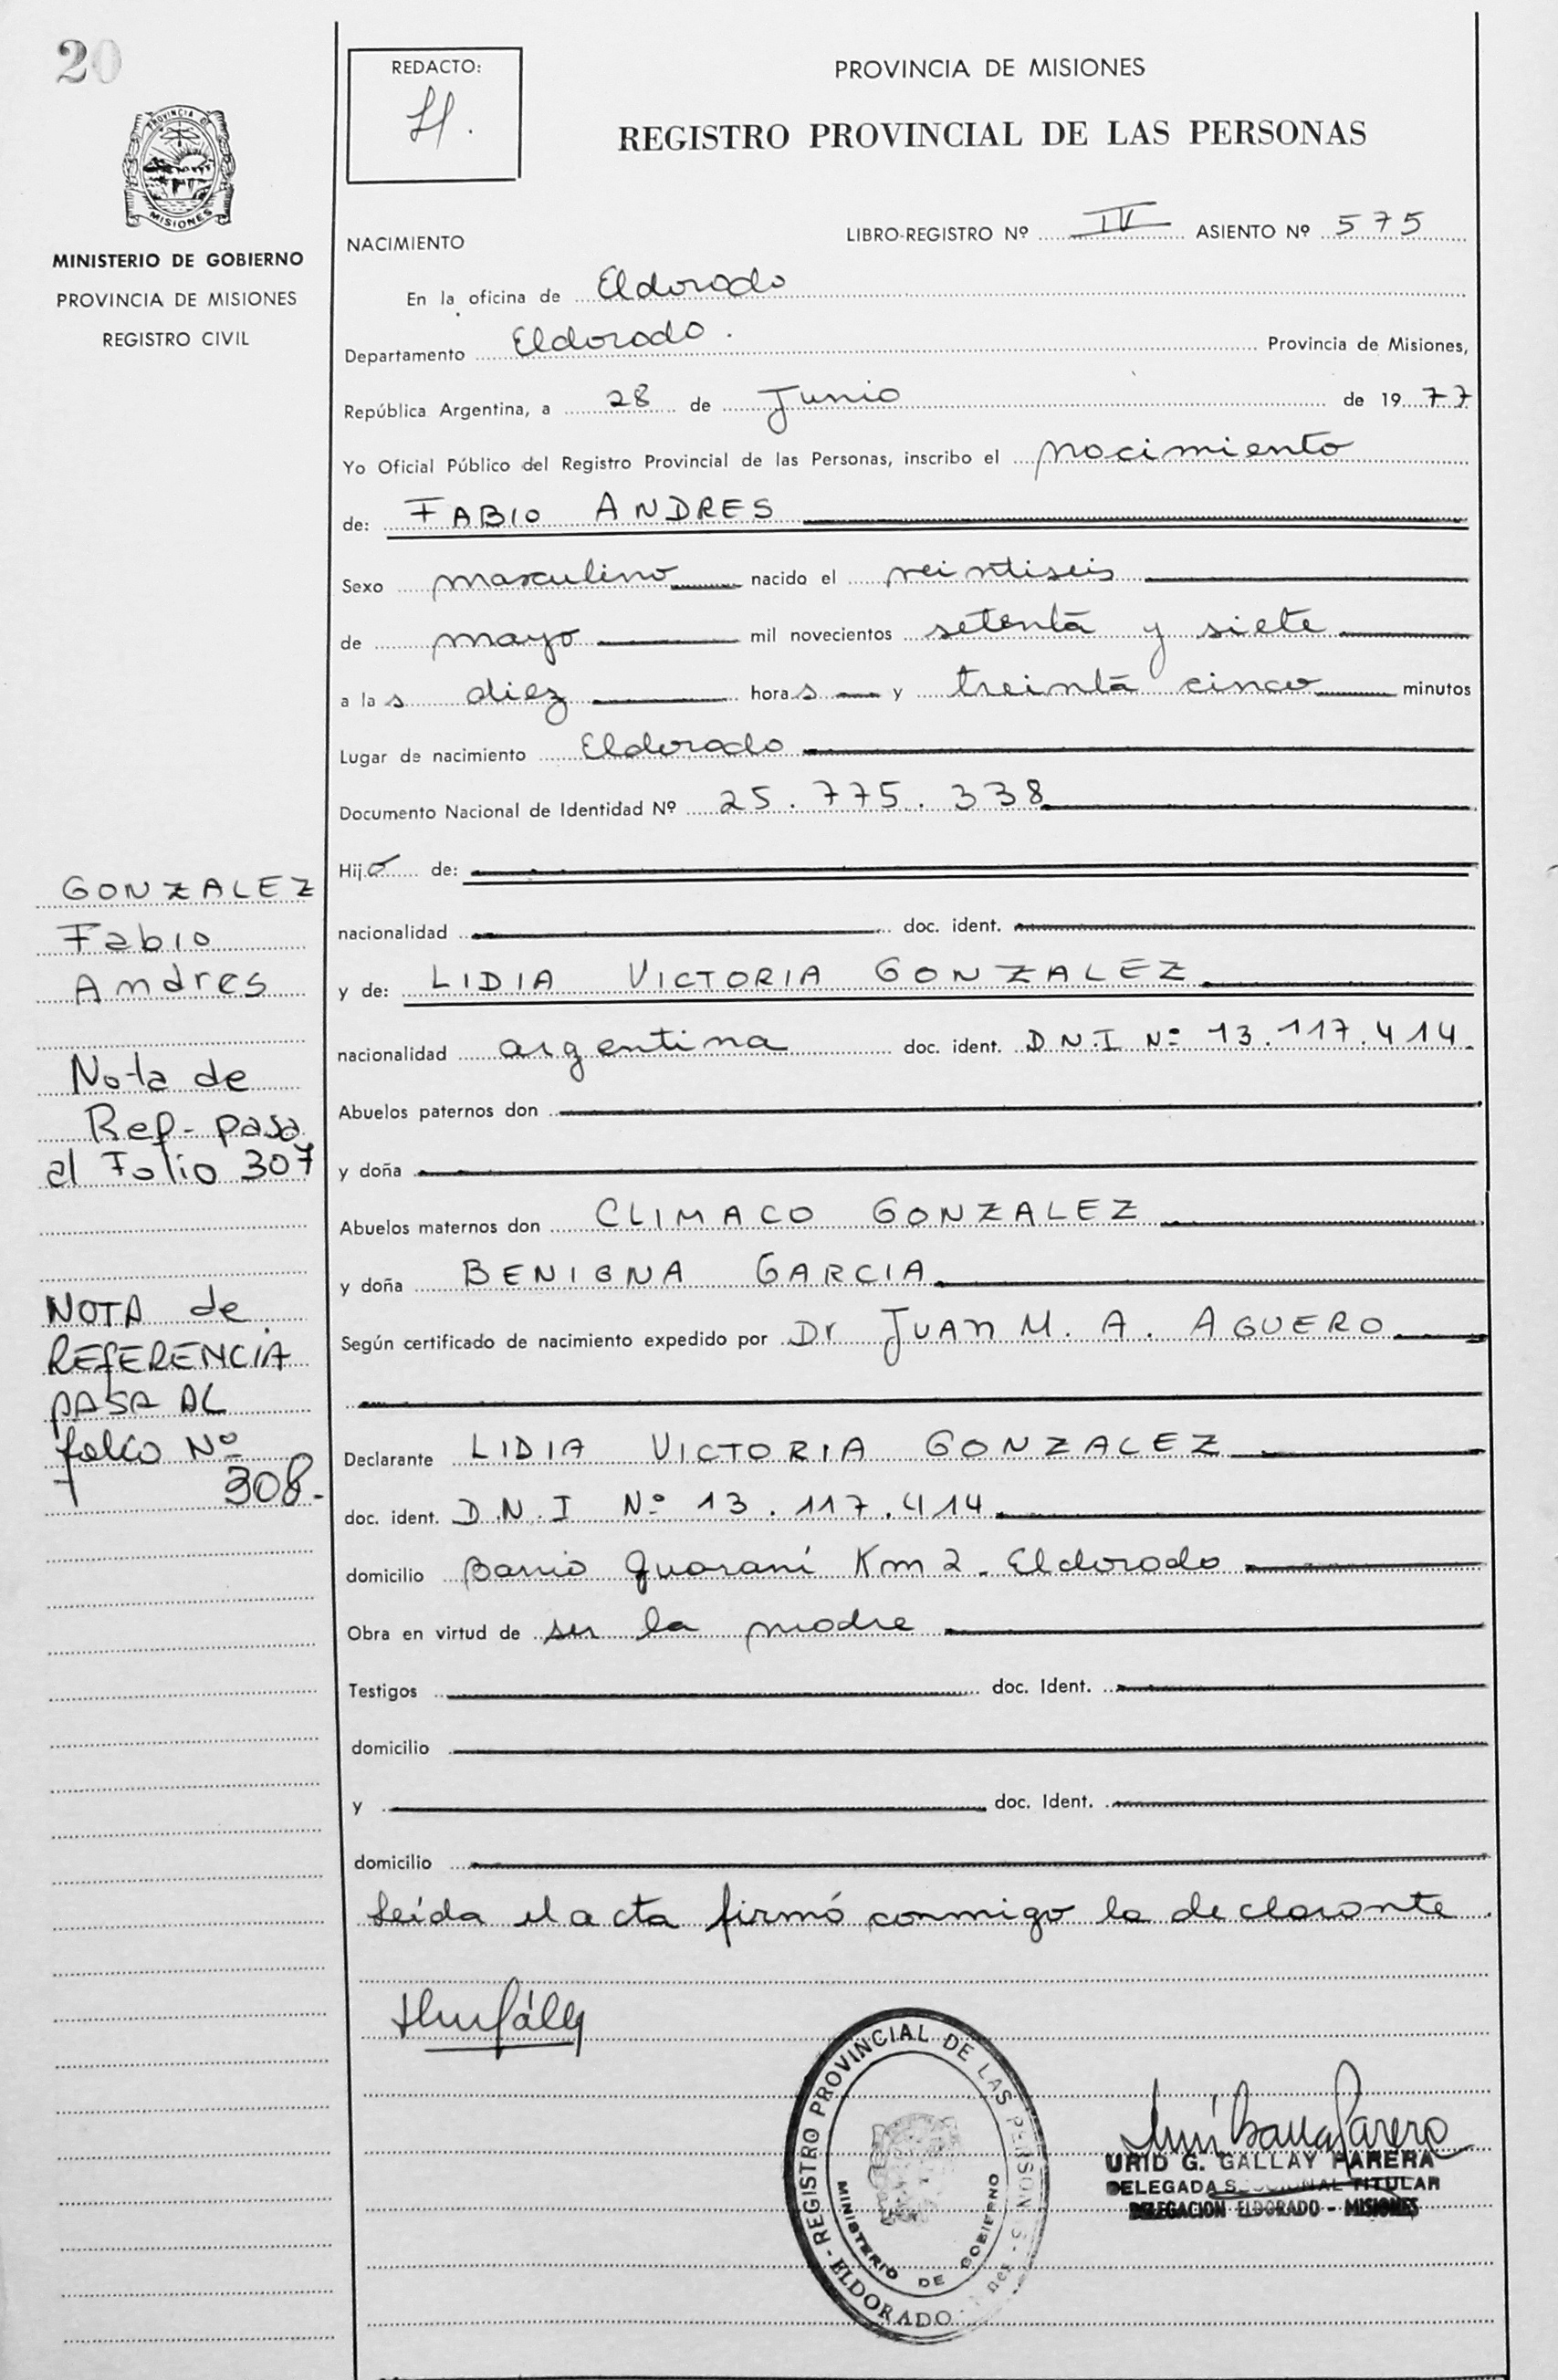 20
PROVINCIA DE
MISIONES
MINISTERIO DE GOBIERNO
PROVINCIA DE MISIONES
REGISTRO CIVIL
REDACTO:
PROVINCIA DE MISIONES
REGISTRO PROVINCIAL DE LAS PERSONAS
NACIMIENTO
LIBRO-REGISTRO Nº IV ASIENTO Nº 575
En la oficina de Eldorado
Departamento Eldorado. Provincia de Misiones,
República Argentina, a 28 de Junio de 1977
Yo Oficial Público del Registro Provincial de las Personas, inscribo el nacimiento
de: FABIO ANDRES
Sexo masculino nacido el veintiseis
de mayo mil novecientos setenta y siete
a las diez horas y treinta cinco minutos
Lugar de nacimiento Eldorado
Documento Nacional de Identidad Nº 25.775.338
Hijo de:
nacionalidad doc. ident.
y de: LIDIA VICTORIA GONZALEZ
nacionalidad argentina doc. ident. D.N.I Nº 13.117.414.
Abuelos paternos don
y doña
Abuelos maternos don CLIMACO GONZALEZ
y doña BENIGNA GARCIA
Según certificado de nacimiento expedido por Dr JUAN M. A. AGUERO
Declarante LIDIA VICTORIA GONZALEZ
doc. ident. D.N.I Nº 13.117.414
domicilio Barrio Guaraní Km 2 - Eldorado
Obra en virtud de ser la madre
Testigos doc. Ident.
domicilio
y doc. Ident.
domicilio
Leída el acta firmó conmigo la declarante.
GONZALEZ
Fabio
Andres
Nota de
Ref- pasa
al Folio 307
NOTA de
REFERENCIA
PASA AL
folio Nº
308.-
REGISTRO PROVINCIAL DE LAS PERSONAS - ELDORADO -
MINISTERIO DE GOBIERNO
URID G. GALLAY PARERA
DELEGADA SECCIONAL TITULAR
DELEGACION ELDORADO - MISIONES